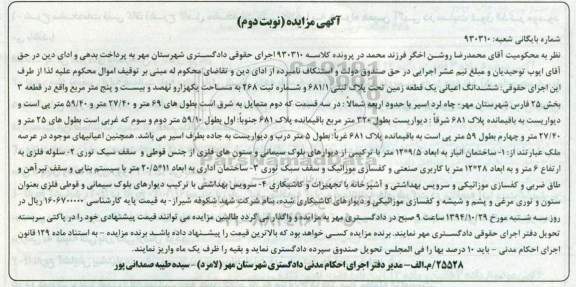 آگهی مزایده (نوبت دوم)
شماره بایگانی شعبه: ۹۳۰۳۱۰
نظر به محکومیت آقای محمدرضا روشن اخگر فرزند محمد در پرونده کلاسه ۹۳۰۳۱۰ اجرای حقوقی دادگستری شهرستان مهر به پرداخت بدهی و ادای دین در حق
آقای ایوب توحیدیان و مبلغ نیم عشر اجرایی در حق صندوق دولت و استنکاف نامبرده از ادای دین و تقاضای محکوم له مبنی بر توقیف اموال محکوم علیه لذا از طرف
این اجرای حقوقی: ششدانگ اعیانی یک قطعه زمین تحت پلاک ثبتی ۶۸۱/۱ و شماره ثبت ۲۶۸ به مساحت یکهزارو نهصد و بیست و پنج متر مربع واقع در قطعه ۳
بخش ۲۵ فارس شهرستان مهر- چاه لرد اسیر با حدود اربعه شمالاً: در سه قسمت که دوم متمایل به شرق است بطول های ۶۹ متر و ۲۷/۴۰ متر و ۵۹/۴۰ متر پی است و
دیواریست به باقیمانده پلاک ۶۸۱ شرقاً: دیواریست بطول ۳۲ متر مربع باقیمانده پلاک ۶۸۱ جنوباً: اول بطول ۵۹/۱۰ متر دوم و سوم که غربی است بطول های ۲۵ متر و
۲۷/۴۰ متر و چهارم بطول ۵۹ متر پی است به باقیمانده پلاک ۶۸۱ غرباً: بطول ۵ متر درب و دیواریست به جاده بطرف اسیر می باشد. همچنین اعیانیهای موجود در عرصه
ملک عبارتند از: ۱- ساختمان انبار به ابعاد ۹/۵*۱۲ متر با ترکیبی از دیوارهای بلوک سیمانی و ستون های فلزی از جنس قوطی و سقف سبک نوری ۲- سلوله فلزی به
ارتفاع ۶ متر و به ابعاد ۲۸*۱۲ متر با کاربری صنعتی و کفسازی موزائیک و سقف سبک نوری ۳- ساختمان اداری به ابعاد ۱۱*۲۰/۵ متر با سیستم بنایی و سقف تیرآهن و
طاق ضربی و کفسازی موزائیکی و سرویس بهداشتی و آشپزخانه با تجهیزات و کاشیکاری ۴- سرویس بهداشتی با ترکیب دیوارهای بلوک سیمانی و قوطی فلزی بعنوان
ستون و توری مرغی و پشم و شیشه و کفسازی موزائیکی و دیوارهای کاشیکاری شده، بنام شرکت شهد شکوفه شیراز- به قیمت پایه کارشناسی ۱۶۰۶۷۰۰۰۰۰ ریال در
روز سه شنبه مورخ ۱۳۹۴/۱۰/۲۹ ساعت ۹ صبح در دادگستری مهر به مزایده و واگذار می گردد طالبین مزایده می توانند قیمت پیشنهادی خود را در پاکتی سربسته
تحویل دفتر اجرای حقوقی دادگستری مهر نمایند. برنده مزایده کسی خواهد بود که بالاترین قیمت را پیشنهاد داده باشد برنده مزایده - به استناده ماده ۱۲۹ قانون
اجرای احکام مدنی - باید ۱۰ درصد بها را فی المجلس تحویل صندوق سپرده دادگستری نماید و بقیه را ظرف یک ماه واریز نمایند.
۲۵۵۲۸/م.الف- مدیر دفتر اجرای احکام مدنی دادگستری شهرستان مهر (لامرد) - سیده طیبه صمدانی پور